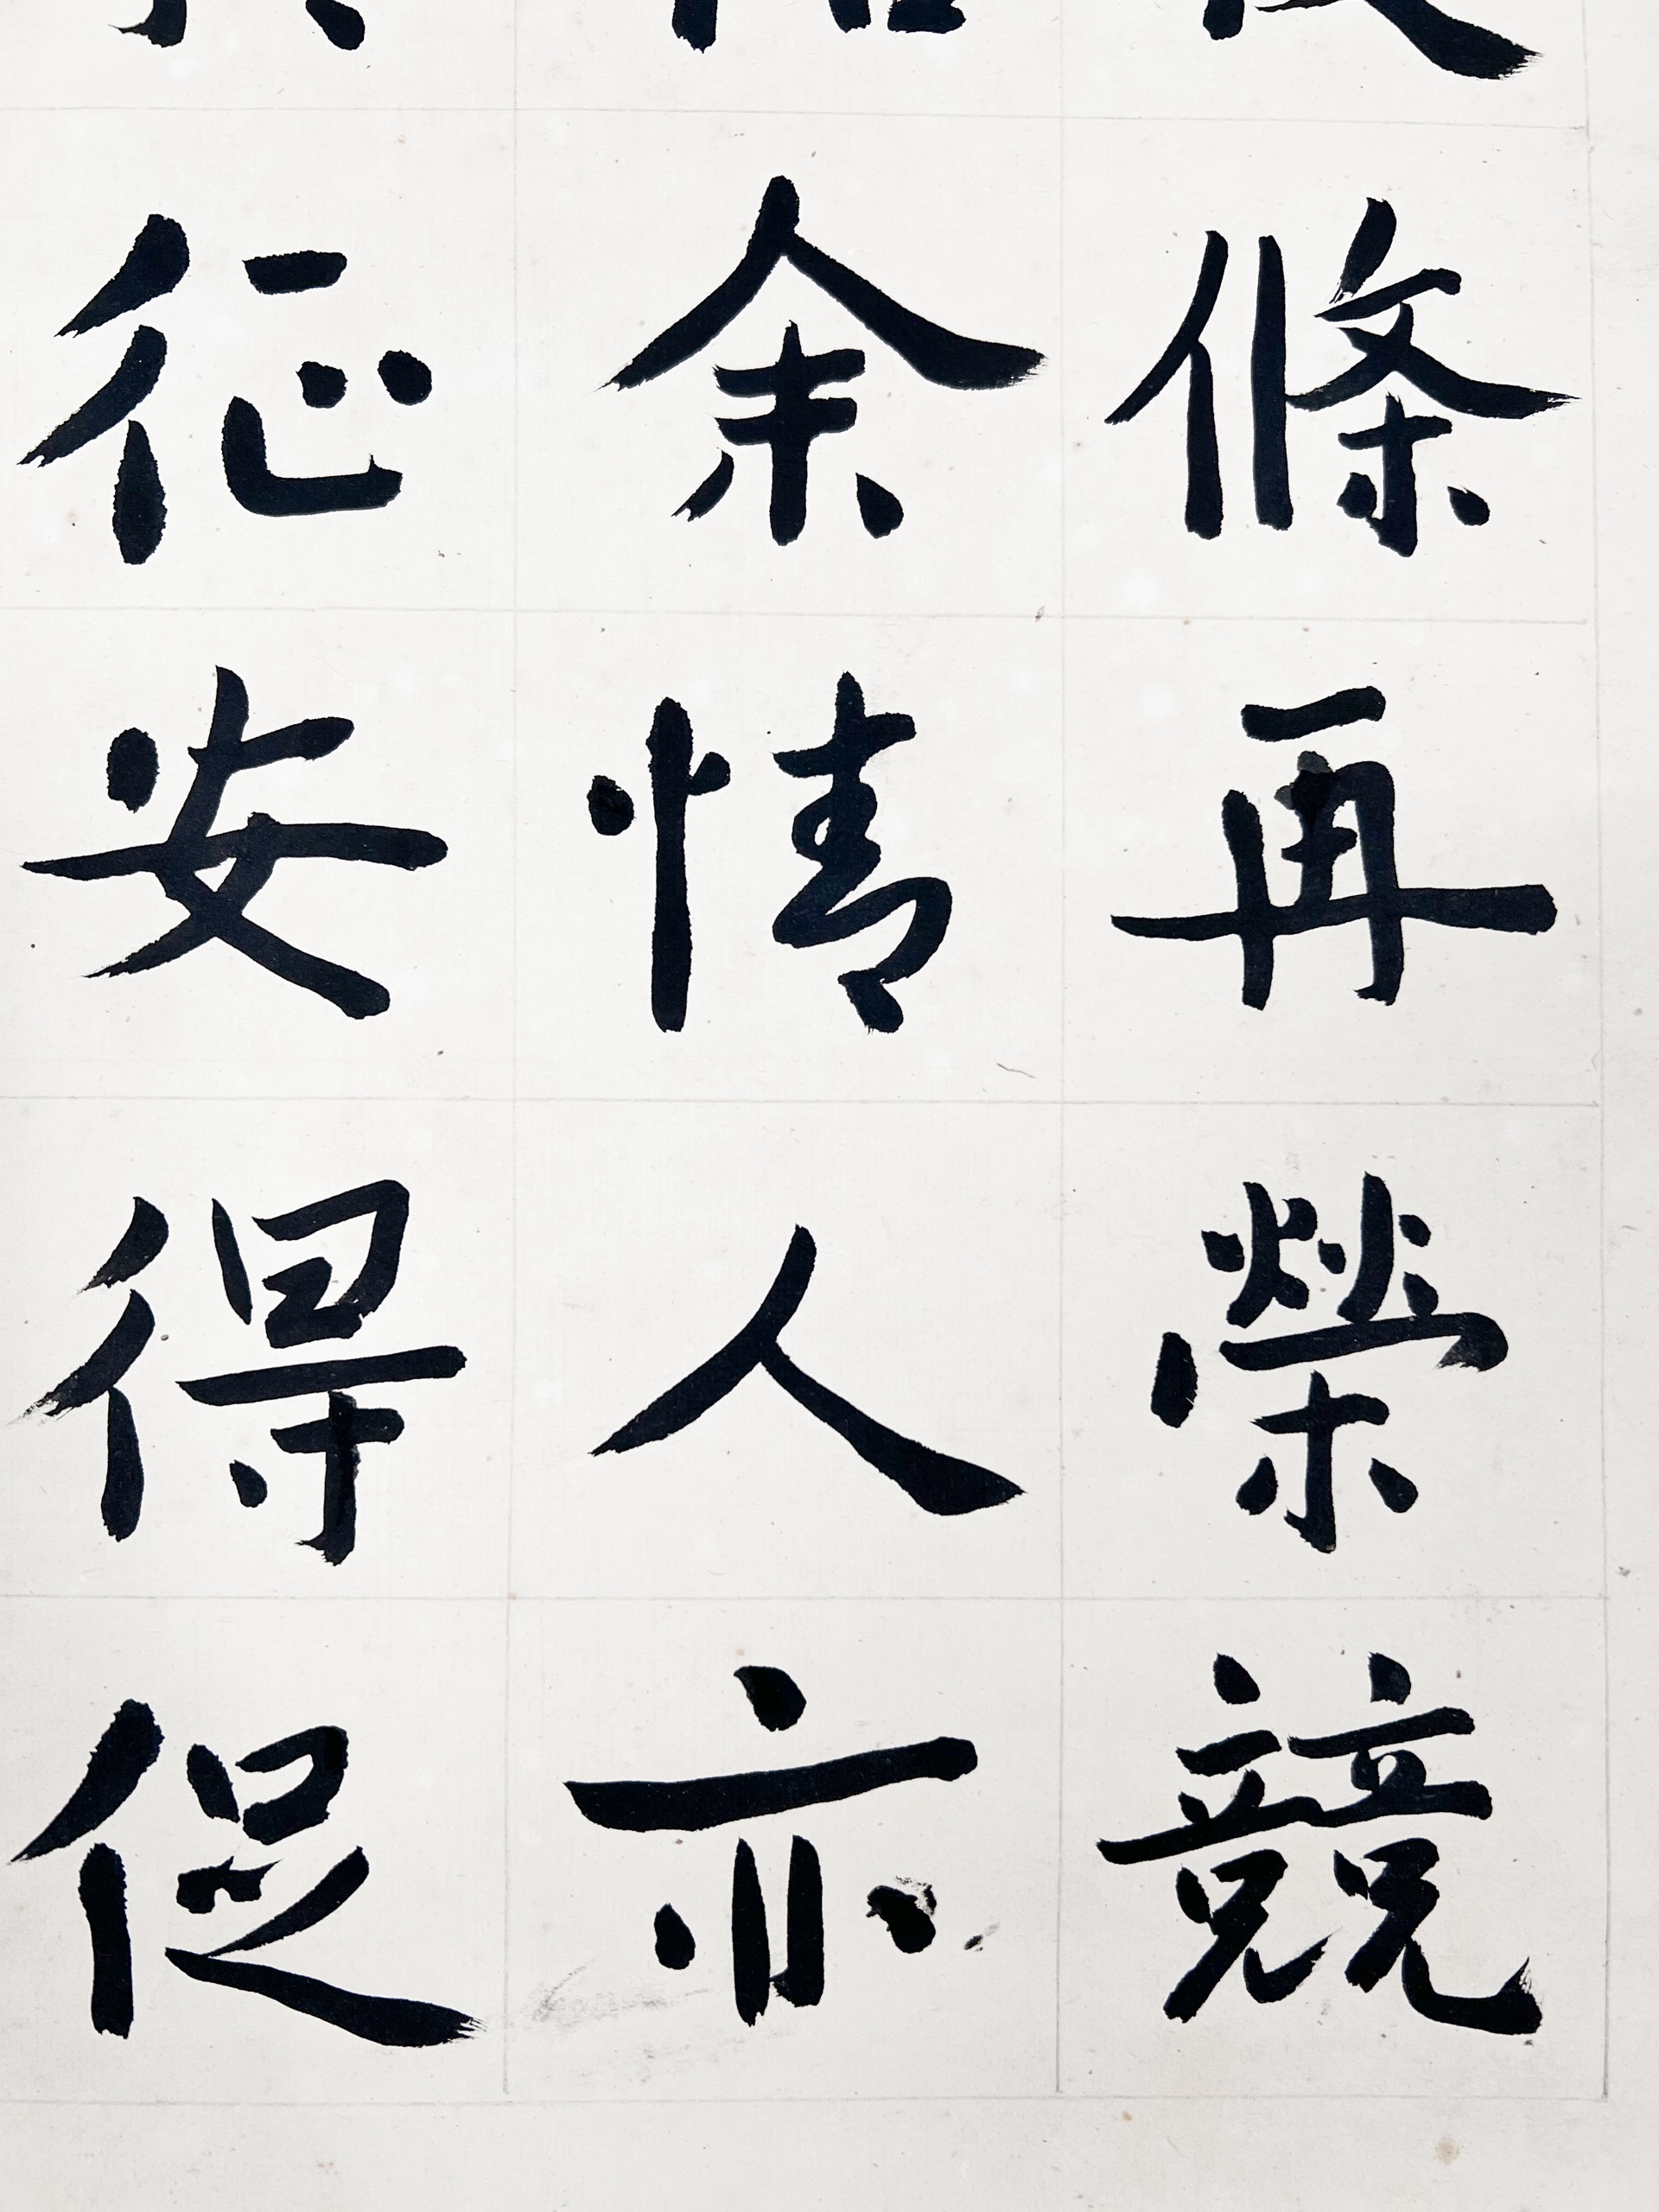 條再榮競
余情人亦
征安得促